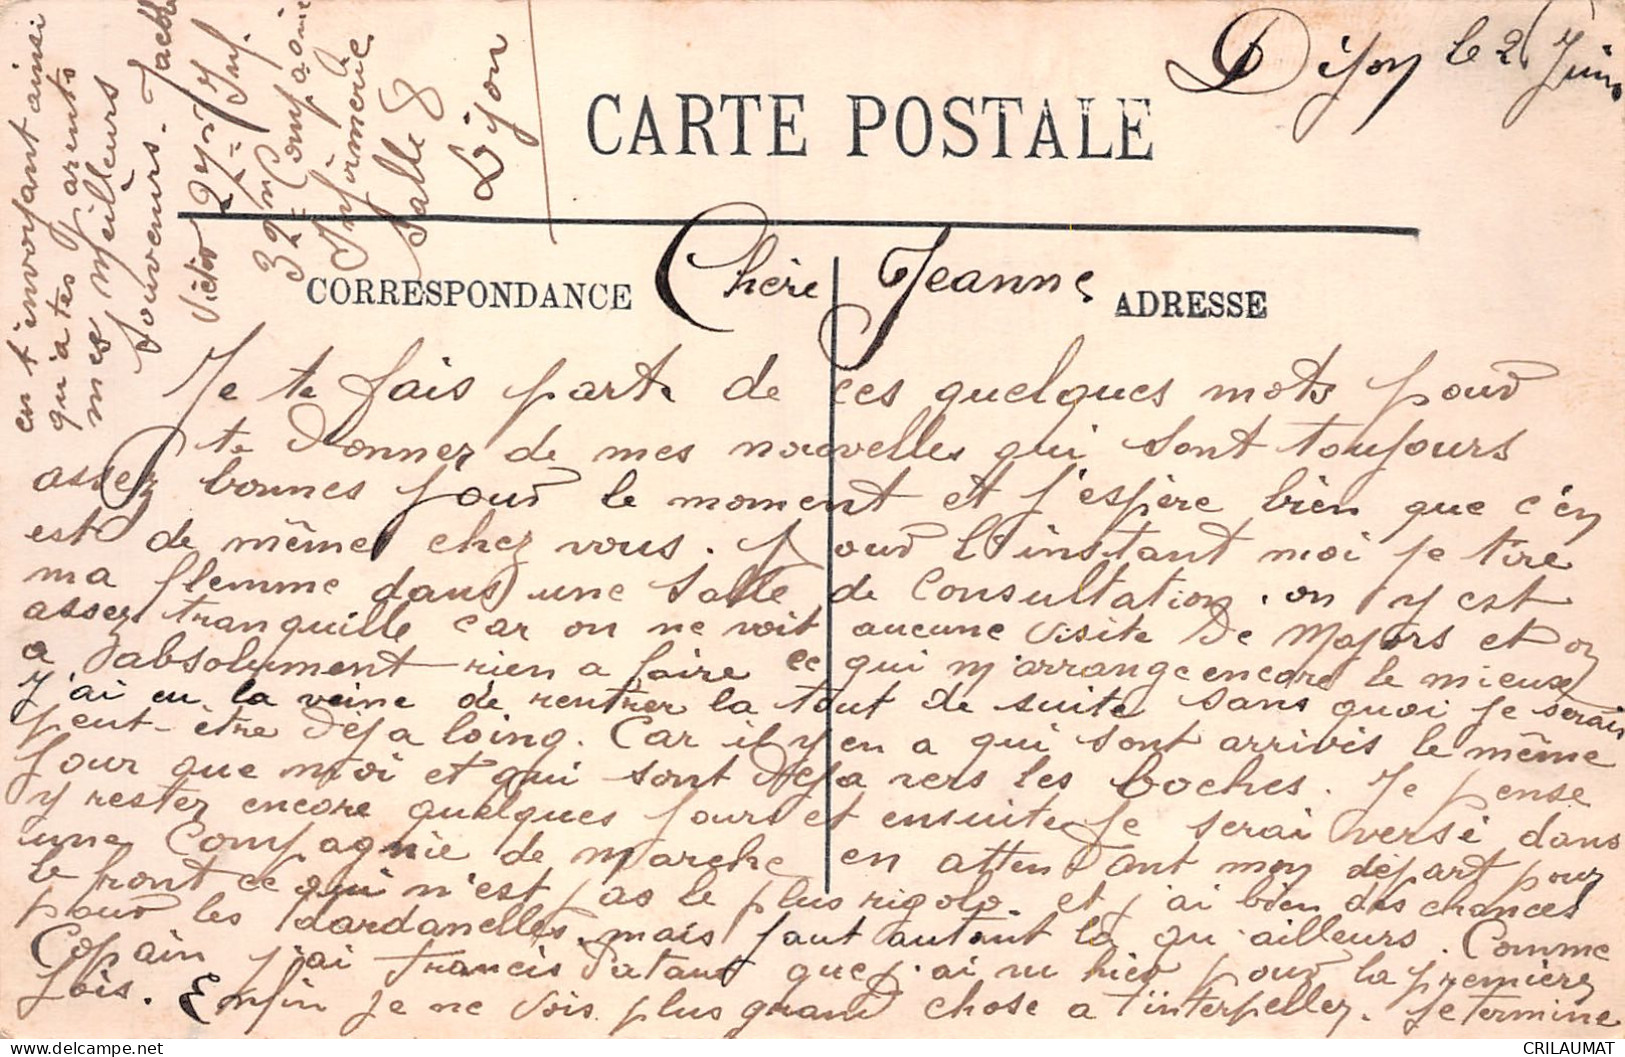 Dijon le 2 Juin
CARTE POSTALE
CORRESPONDANCE
ADRESSE
Chère Jeanne
Je te fais parte de ces quelques mots pour
te donner de mes nouvelles qui sont toujours
assez bonnes pour le moment et j'espère bien que c'en
est de même chez vous. Pour l'instant moi je tire
ma flemme dans une salle de consultation. on y est
assez tranquille car on ne voit aucune visite de Majors et on
a d'absolument rien a faire ce qui m'arrange encore le mieux
J'ai eu la veine de rentrer la tout de suite sans quoi je serais
peut-être déja loing. Car il y en a qui sont arrivés le même
jour que moi et qui sont déja vers les boches. Je pense
y rester encore quelques jours et ensuite je serai versé dans
une Compagnie de marche en attendant mon départ pour
le front ce qui n'est pas le plus rigolo. et j'ai bien des chances
pour les dardanelles. mais faut autant là qu'ailleurs. Comme
Copain j'ai Francis que j'ai vu hier pour la première
fois. Enfin je ne vois plus grand chose a t'interpeller. Je termine
en t'envoyant ainsi
qu'a tes parents
mes meilleurs
souvenirs.
Victor
27e Inf.
32me Compagnie
Infirmerie
Salle 8
Dijon
CRILAUMAT